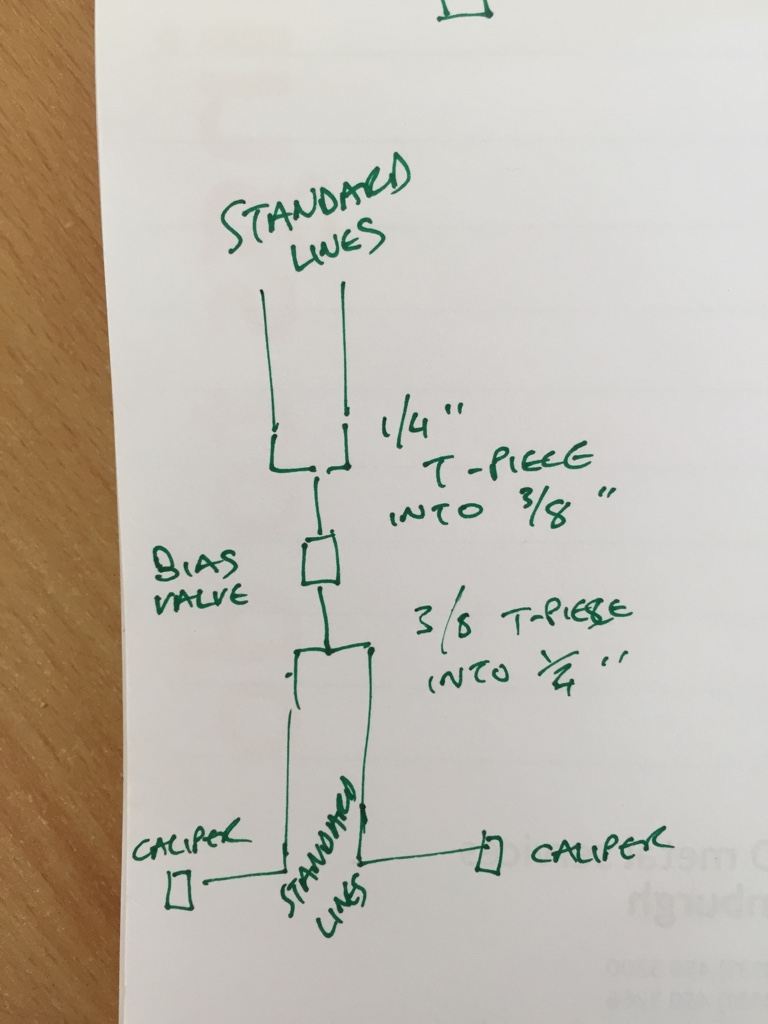 STANDARD
LINES
1/4"
T-PIECE
INTO 3/8"
BIAS
VALVE
3/8 T-PIECE
INTO 1/4"
CALIPER
STANDARD
LINES
CALIPER